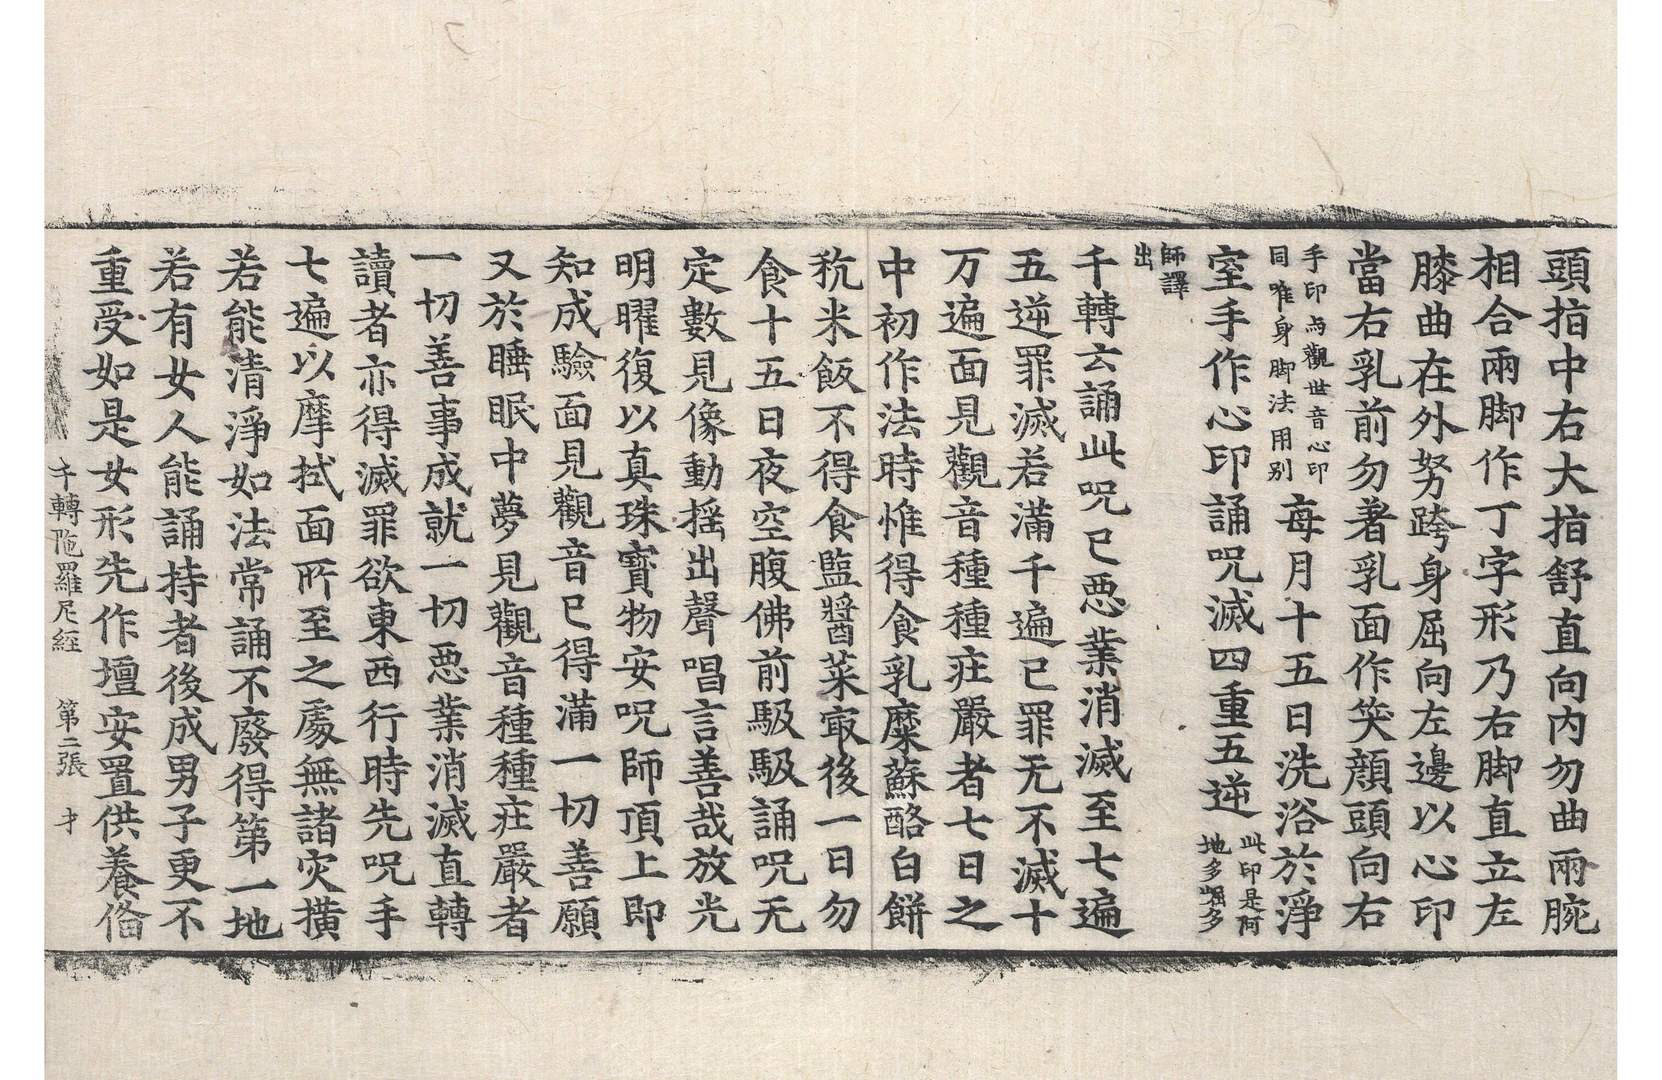 頭指中右大指舒直向内勿曲兩腕
相合兩脚作丁字形乃右脚直立左
膝曲在外努跨身屈向左邊以心印
當右乳前勿著乳面作笑顔頭向右
手印与觀世音心印
同唯身脚法用别
每月十五日洗浴於淨
室手作心印誦呪滅四重五逆
此印是阿
地多崛多
師譯
出
千轉云誦此呪已惡業消滅至七遍
五逆罪滅若滿千遍已罪无不滅十
万遍面見觀音種種莊嚴者七日之
中初作法時惟得食乳糜蘇酪白餅
秔米飯不得食盬醬菜㝡後一日勿
食十五日夜空腹佛前駇駇誦呪无
定數見像動揺出聲唱言善哉放光
明曜復以真珠寶物安呪師頂上即
知成驗面見觀音已得滿一切善願
又於睡眠中夢見觀音種種莊嚴者
一切善事成就一切惡業消滅直轉
讀者亦得滅罪欲東西行時先呪手
七遍以摩拭面所至之處無諸灾横
若能清淨如法常誦不廢得第一地
若有女人能誦持者後成男子更不
重受如是女形先作壇安置供養俻
千轉陁羅尼經 第二張 才